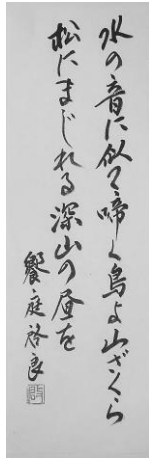 水の音に似て啼く鳥よ山ざくら
松にまじれる深山の昼を
饗庭